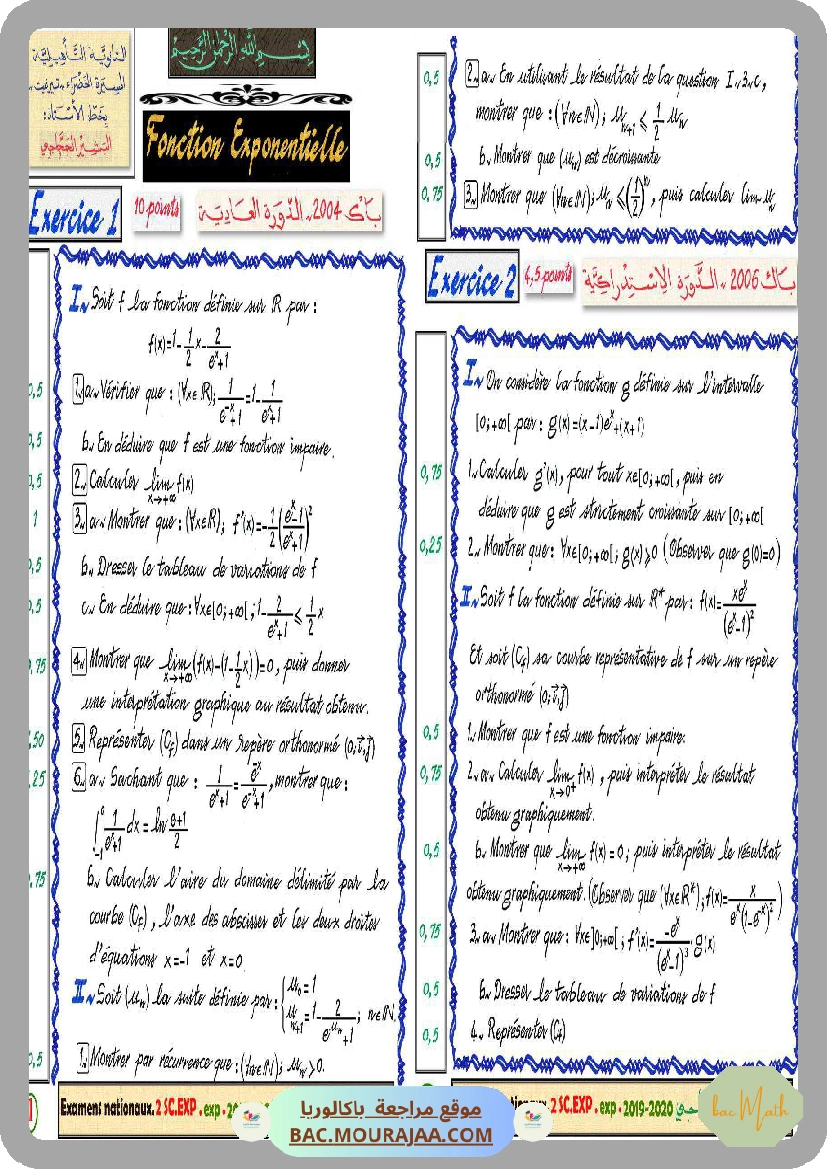 الثانوية التأهيلية
بخط الأستاذ:
بسم الله الرحمن الرحيم
Fonction Exponentielle
Exercice 1
10 points
باك 2004، الدورة العادية
I~ Soit f la fonction définie sur ℝ par :
f(x)=1-\frac{1}{2}x-\frac{2}{e^x+1}
0,5
1~ a~ Vérifier que : (∀x∈ℝ); \frac{1}{e^{-x}+1}=1-\frac{1}{e^x+1}
,5
b~ En déduire que f est une fonction impaire.
,5
2~ Calculer \lim_{x→+∞} f(x)
1
3~ a~ Montrer que : (∀x∈ℝ); f'(x)=-\frac{1}{2}(\frac{e^x-1}{e^x+1})^2
0,5
b~ Dresser le tableau de variations de f
0,5
c~ En déduire que : ∀x∈[0;+∞[ ; 1-\frac{2}{e^x+1} ≤ \frac{1}{2}x
,75
4~ Montrer que \lim_{x→+∞}(f(x)-(1-\frac{1}{2}x))=0, puis donner
une interprétation graphique au résultat obtenu.
,50
5~ Représenter (Cf) dans un repère orthonormé (0;i⃗,j⃗)
,25
6~ a~ Sachant que : \frac{1}{e^x+1}=\frac{e^{-x}}{e^{-x}+1}, montrer que :
∫_{-1}^{0} \frac{1}{e^x+1} dx = ln \frac{e+1}{2}
,75
b~ Calculer l'aire du domaine délimité par la
courbe (Cf), l'axe des abscisses et les deux droites
d'équations x=-1 et x=0
II~ Soit (u_n) la suite définie par : { u_0=1
u_{n+1}=1-\frac{2}{e^{u_n}+1} ; n∈ℕ
0,5
1~ Montrer par récurrence que : (∀n∈ℕ); u_n>0.
0,5
2~ a~ En utilisant le résultat de la question I~3~c,
montrer que : (∀n∈ℕ); u_{n+1} ≤ \frac{1}{2} u_n
0,5
b~ Montrer que (u_n) est décroissante
0,75
3~ Montrer que (∀n∈ℕ); u_n ≤ (\frac{1}{2})^n, puis calculer lim u_n
Exercice 2
4,5 points
باك 2006، الدورة الإستدراكية
I~ On considère la fonction g définie sur l'intervalle
[0;+∞[ par : g(x)=(x-1)e^x+(x+1)
0,75
1~ Calculer g'(x), pour tout x∈[0;+∞[, puis en
déduire que g est strictement croissante sur [0;+∞[
0,25
2~ Montrer que : ∀x∈[0;+∞[; g(x)≥0 (Observer que g(0)=0)
II~ Soit f la fonction définie sur ℝ* par : f(x)=\frac{xe^x}{(e^x-1)^2}
Et soit (Cf) sa courbe représentative de f sur un repère
orthonormé (0;i⃗,j⃗)
0,5
1~ Montrer que f est une fonction impaire.
0,75
2~ a~ Calculer \lim_{x→0^+} f(x), puis interpréter le résultat
obtenu graphiquement.
0,5
b~ Montrer que \lim_{x→+∞} f(x)=0; puis interpréter le résultat
obtenu graphiquement. (Observer que (∀x∈ℝ*); f(x)=\frac{x}{e^x(1-e^{-x})^2})
0,75
3~ a~ Montrer que : ∀x∈]0;+∞[ ; f'(x)=\frac{-e^x}{(e^x-1)^3} g(x)
0,5
b~ Dresser le tableau de variations de f
0,5
4~ Représenter (Cf)
1
Examens nationaux. 2 SC.EXP . exp
موقع مراجعة باكالوريا
BAC.MOURAJAA.COM
2 SC.EXP . exp - 2019-2020
bac Math